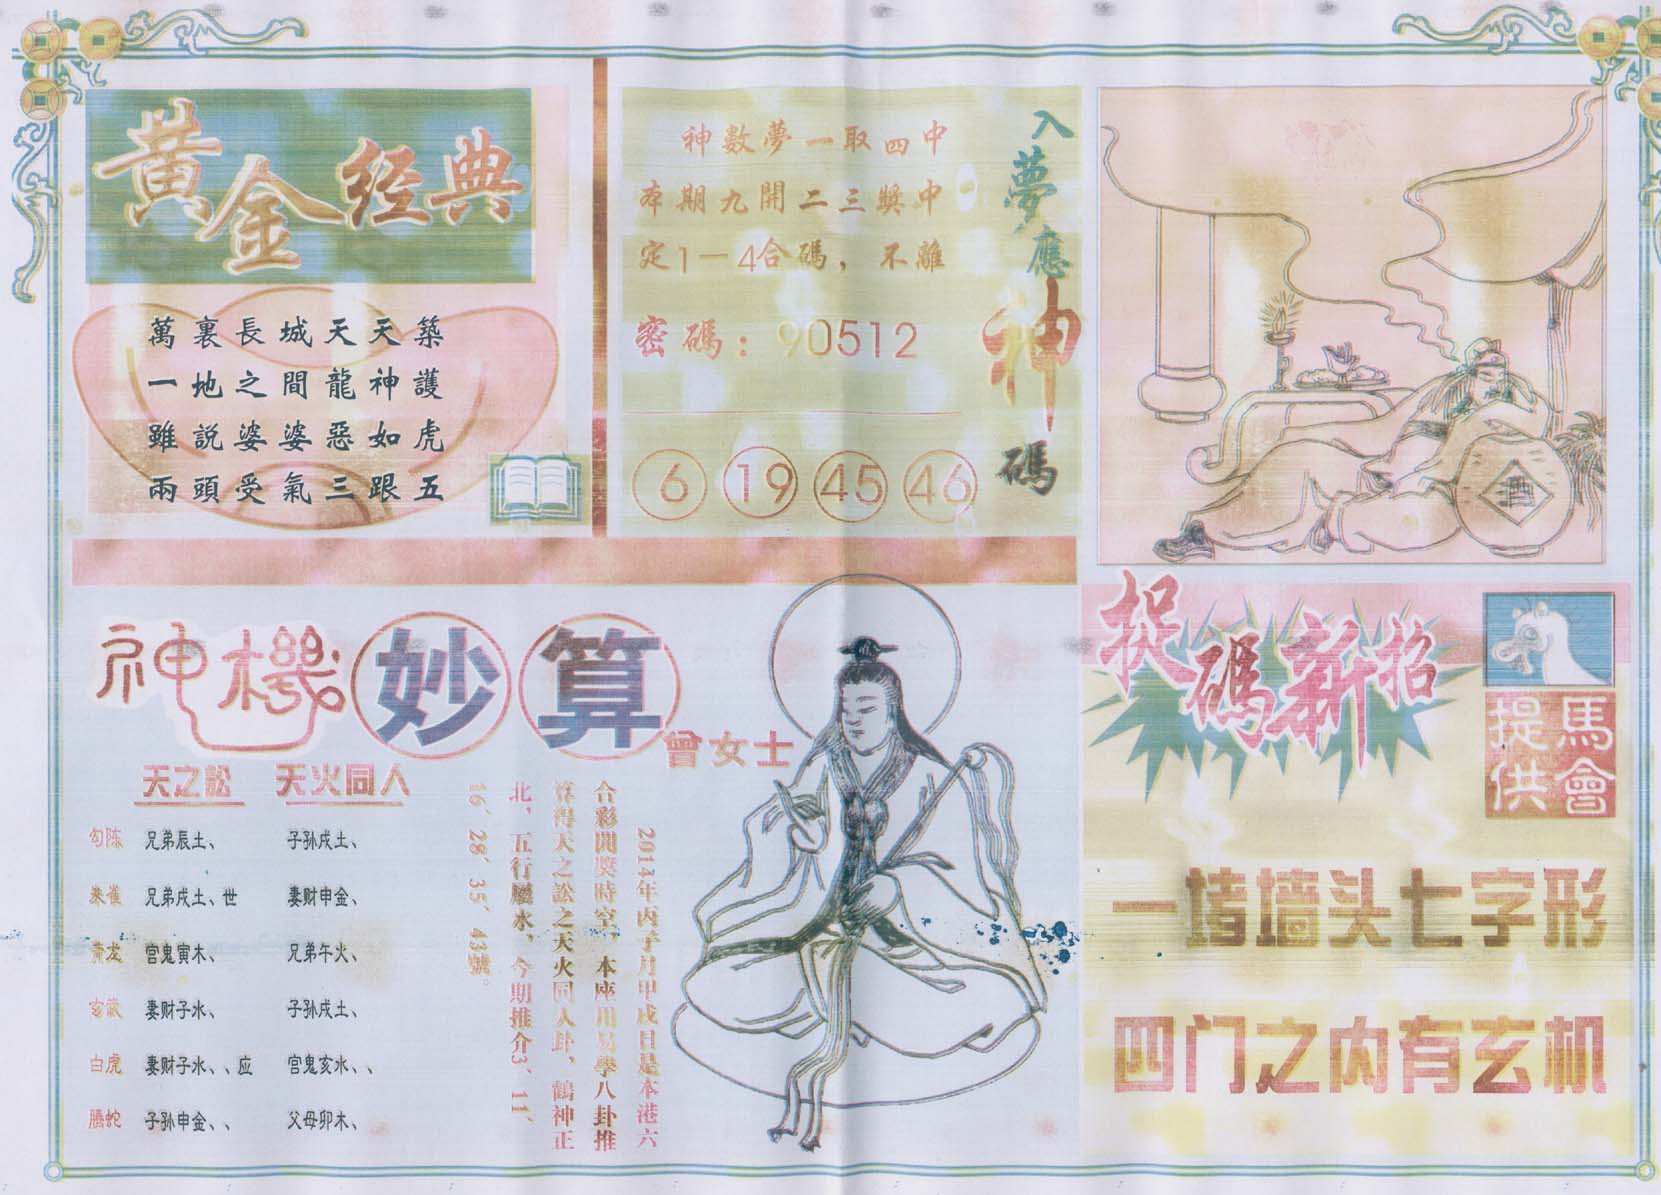 黃金经典
萬裏長城天天築
一地之間龍神護
雖説婆婆惡如虎
兩頭受氣三跟五
神數夢一取四中
本期九開二三獎中
定1—4合碼，不離
密碼：90512
6 19 45 46
入夢應神碼
神機妙算
曾女士
天之訟 天火同人
勾陈 兄弟辰土、 子孙戌土、
朱雀 兄弟戌土、世 妻财申金、
青龙 官鬼寅木、 兄弟午火、
玄武 妻财子水、 子孙戌土、
白虎 妻财子水、、应 官鬼亥水、、
腾蛇 子孙申金、、 父母卯木、
2014年丙子月甲戌日是本港六
合彩開獎時空，本座用易學八卦推
算得天之訟之天火同人卦，鶴神正
北，五行屬水，今期推介3、11、
16、28、35、43號。
捉碼新招
馬會
提供
一堵墙头七字形
四门之内有玄机